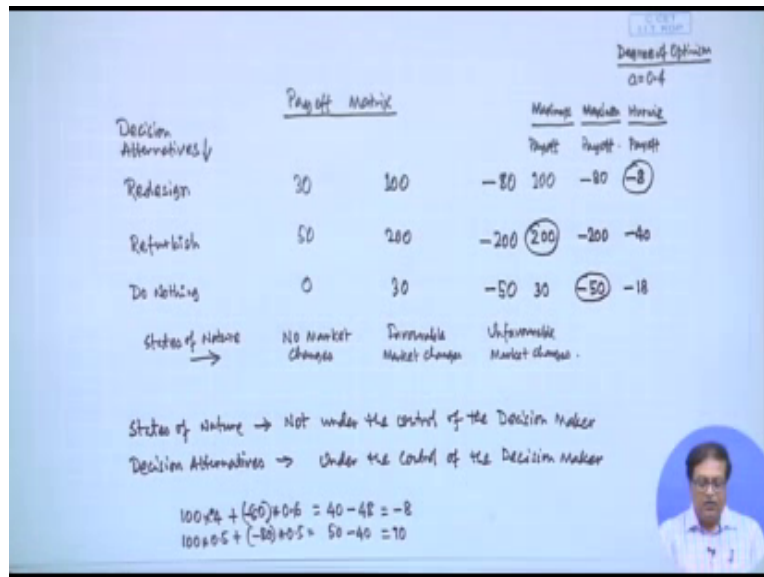 C CET
I.I.T. KGP
Degree of Optimism
α=0.4
Payoff Matrix
Decision
Alternatives↓
Maximax Maximin Hurwic
Payoff Payoff. Payoff
Redesign 30 100 -80 100 -80 -8
Refurbish 50 200 -200 200 -200 -40
Do Nothing 0 30 -50 30 -50 -18
States of Nature → No Market Changes Favourable Market Changes Unfavourable Market Changes.
States of Nature → Not under the control of the Decision Maker
Decision Alternatives → Under the Control of the Decision Maker
+ (-80)*0.6 = 40-48 = -8
100*0.5 + (-80)*0.5 = 50-40 = 10